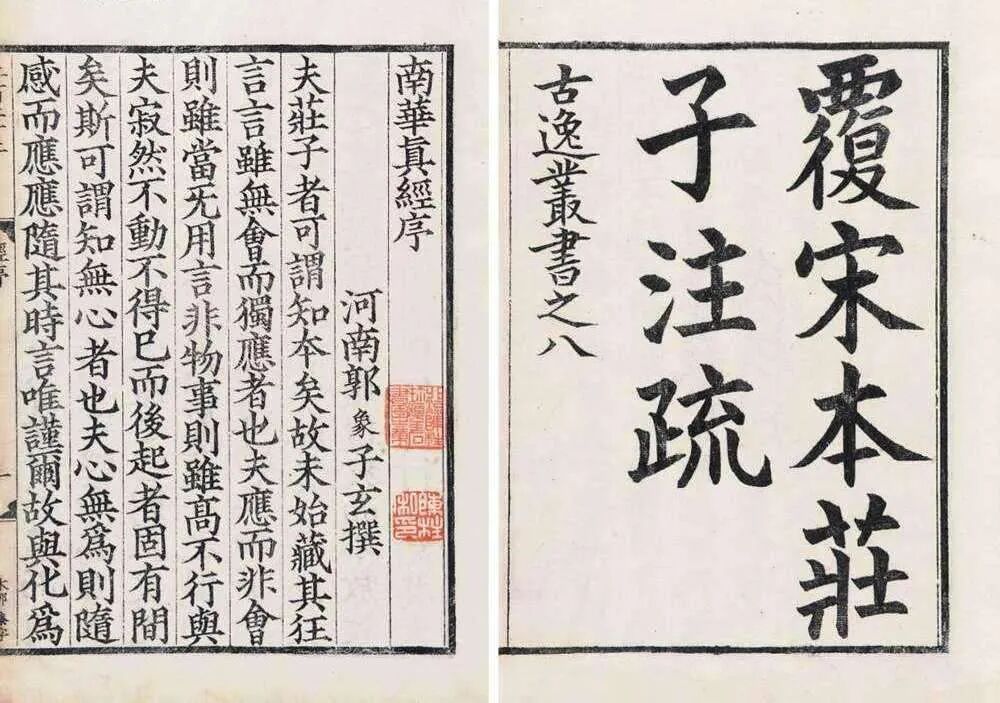 覆宋本莊
子注疏
古逸叢書之八
南華眞經序
河南郭象子玄撰
夫莊子者可謂知夲矣故未始藏其狂
言言雖無會而獨應者也夫應而非會
則雖當旡用言非物事則雖高不行與
夫寂然不動不得已而後起者固有間
矣斯可謂知無心者也夫心無爲則隨
感而應應隨其時言唯謹爾故與化爲